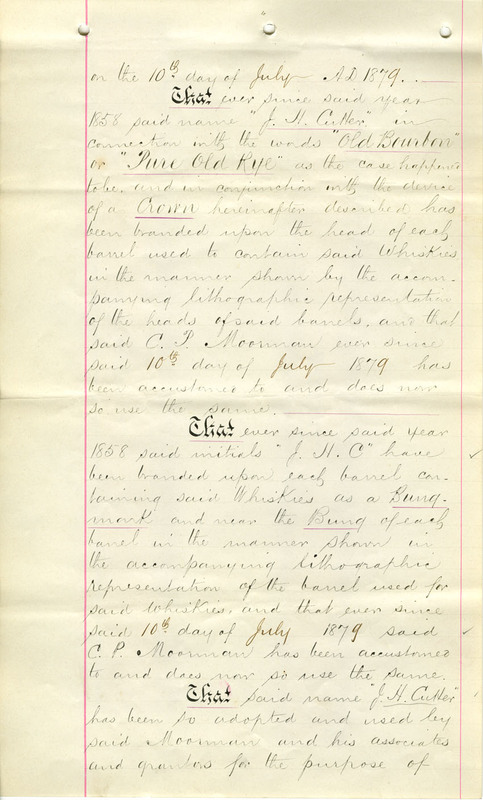 on the 10th day of July A.D. 1879.
That ever since said year
1858 said name "J. H. Cutter" in
connection with the words "Old Bourbon"
or "Pure Old Rye" as the case happened
to be, and in conjunction with the device
of a Crown hereinafter described has
been branded upon the head of each
barrel used to contain said Whiskies
in the manner shown by the accom-
panying lithographic representation
of the heads of said barrels, and that
said C. P. Moorman ever since
said 10th day of July 1879 has
been accustomed to and does now
so use the same.
That ever since said year
1858 said initials "J. H. C" have
been branded upon each barrel con-
taining said Whiskies as a Bung-
mark and near the Bung of each
barrel in the manner shown in
the accompanying lithographic
representation of the barrel used for
said Whiskies, and that ever since
said 10th day of July 1879 said
C. P. Moorman has been accustomed
to and does now so use the same.
That said name "J. H. Cutter"
has been so adopted and used by
said Moorman and his associates
and grantors for the purpose of